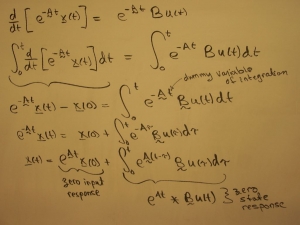 d/dt [e^-At x(t)] = e^-At B u(t)
∫₀ᵗ d/dt [e^-At x(t)] dt = ∫₀ᵗ e^-At B u(t) dt
dummy variable of integration
e^-At x(t) - x(0) = ∫₀ᵗ e^-At B u(t) dt
e^-At x(t) = x(0) + ∫₀ᵗ e^-Aτ B u(τ) dτ
x(t) = e^At x(0) + ∫₀ᵗ e^A(t-τ) B u(τ) dτ
zero input response
e^At * B u(t) } zero state response